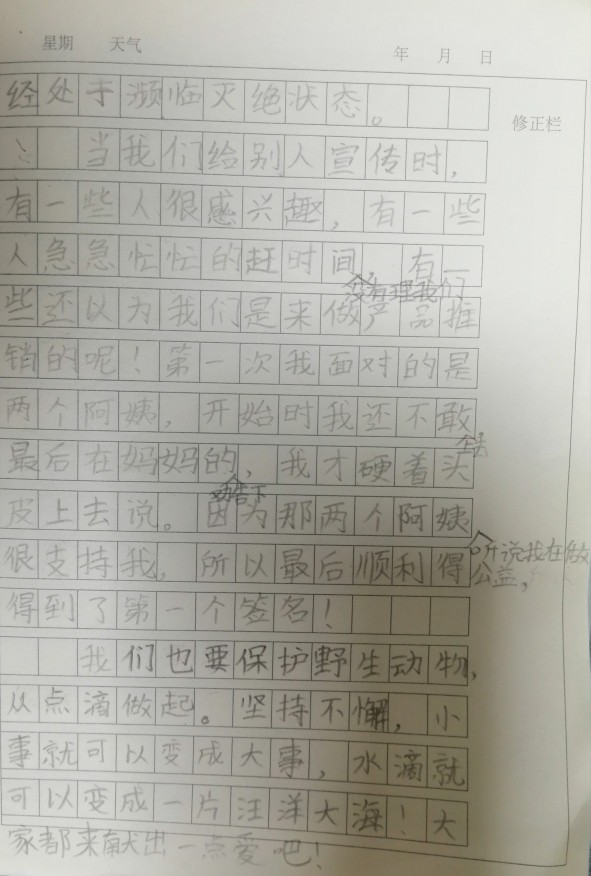 星期 天气 年 月 日
修正栏
经处于濒临灭绝状态。
当我们给别人宣传时，
有一些人很感兴趣，有一些
人急急忙忙的赶时间，有一
没有理我们
些还以为我们是来做产品推
销的呢！第一次我面对的是
两个阿姨，开始时我还不敢
去
最后在妈妈的，我才硬着头
劝告下
皮上去说。因为那两个阿姨
听说我在做
很支持我，所以最后顺利得
公益，
得到了第一个签名！
我们也要保护野生动物，
从点滴做起。坚持不懈，小
事就可以变成大事，水滴就
可以变成一片汪洋大海！大
家都来献出一点爱吧！